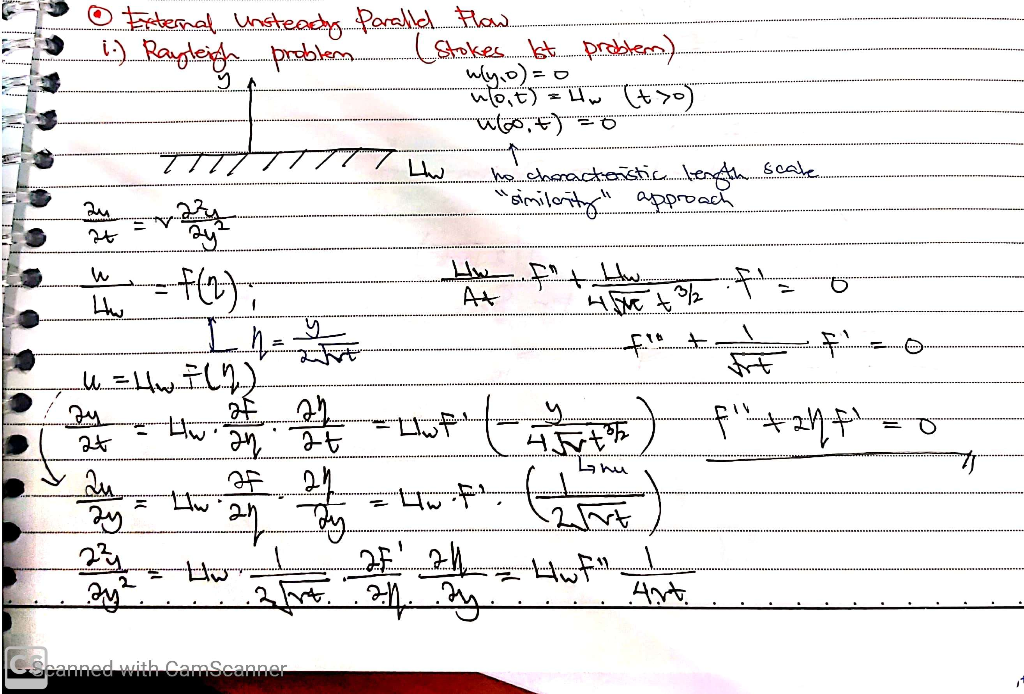 ⊙ External Unsteady Parallel Flow
i.) Rayleigh problem (Stokes 1st problem)
y
u(y,0) = 0
u(0,t) = Uw (t>0)
u(∞,t) = 0
↑
Uw
no characteristic length scale
"similarity" approach
∂u/∂t = ν ∂²u/∂y²
u/Uw = f(η);
η = y/2√νt
u = Uw F(η)
∂u/∂t = Uw · ∂F/∂η · ∂η/∂t = Uw F' (- y/4√ν t^3/2)
↳ nu
∂u/∂y = Uw · ∂F/∂η · ∂η/∂y = Uw · F' · (1/2√νt)
∂²u/∂y² = Uw · 1/2√νt · ∂F'/∂η · ∂η/∂y = Uw F'' 1/4νt
F' = 0
F'' + 2η F' = 0
CS Scanned with CamScanner